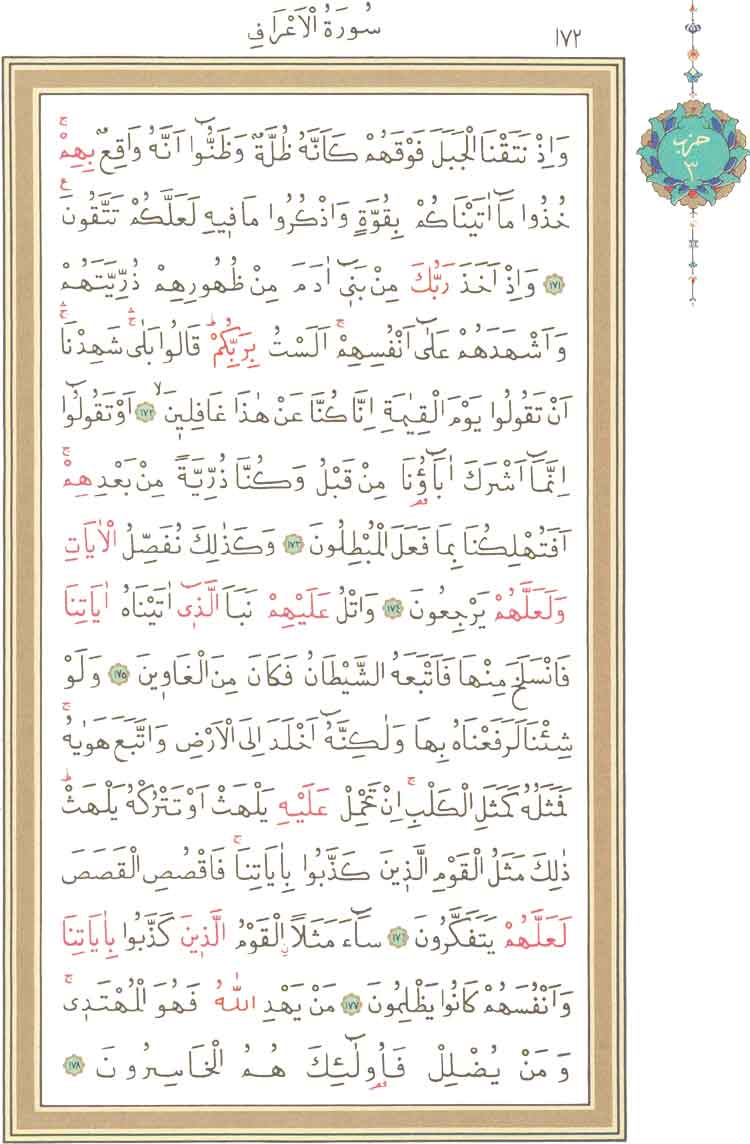 سُورَةُ الْاَعْرَافِ
١٧٢
حزب
٣
وَاِذْ نَتَقْنَا الْجَبَلَ فَوْقَهُمْ كَاَنَّهُ ظُلَّةٌ وَظَنُّٓوا اَنَّهُ وَاقِعٌ بِهِمْۚ
خُذُوا مَٓا اٰتَيْنَاكُمْ بِقُوَّةٍ وَاذْكُرُوا مَا ف۪يهِ لَعَلَّكُمْ تَتَّقُونَ۟
﴿١٧١﴾ وَاِذْ اَخَذَ رَبُّكَ مِنْ بَن۪ٓي اٰدَمَ مِنْ ظُهُورِهِمْ ذُرِّيَّتَهُمْ
وَاَشْهَدَهُمْ عَلٰٓى اَنْفُسِهِمْۚ اَلَسْتُ بِرَبِّكُمْۜ قَالُوا بَلٰىۚۛ شَهِدْنَاۚۛ
اَنْ تَقُولُوا يَوْمَ الْقِيٰمَةِ اِنَّا كُنَّا عَنْ هٰذَا غَافِل۪ينَۙ ﴿١٧٢﴾ اَوْ تَقُولُٓوا
اِنَّمَٓا اَشْرَكَ اٰبَٓاؤُ۬نَا مِنْ قَبْلُ وَكُنَّا ذُرِّيَّةً مِنْ بَعْدِهِمْۚ
اَفَتُهْلِكُنَا بِمَا فَعَلَ الْمُبْطِلُونَ ﴿١٧٣﴾ وَكَذٰلِكَ نُفَصِّلُ الْاٰيَاتِ
وَلَعَلَّهُمْ يَرْجِعُونَ ﴿١٧٤﴾ وَاتْلُ عَلَيْهِمْ نَبَاَ الَّذ۪ٓي اٰتَيْنَاهُ اٰيَاتِنَا
فَانْسَلَخَ مِنْهَا فَاَتْبَعَهُ الشَّيْطَانُ فَكَانَ مِنَ الْغَاو۪ينَ ﴿١٧٥﴾ وَلَوْ
شِئْنَا لَرَفَعْنَاهُ بِهَا وَلٰكِنَّهُٓ اَخْلَدَ اِلَى الْاَرْضِ وَاتَّبَعَ هَوٰيهُۚ
فَمَثَلُهُ كَمَثَلِ الْكَلْبِۚ اِنْ تَحْمِلْ عَلَيْهِ يَلْهَثْ اَوْ تَتْرُكْهُ يَلْهَثْۜ
ذٰلِكَ مَثَلُ الْقَوْمِ الَّذ۪ينَ كَذَّبُوا بِاٰيَاتِنَاۚ فَاقْصُصِ الْقَصَصَ
لَعَلَّهُمْ يَتَفَكَّرُونَ ﴿١٧٦﴾ سَٓاءَ مَثَلاًۨ الْقَوْمُ الَّذ۪ينَ كَذَّبُوا بِاٰيَاتِنَا
وَاَنْفُسَهُمْ كَانُوا يَظْلِمُونَ ﴿١٧٧﴾ مَنْ يَهْدِ اللّٰهُ فَهُوَ الْمُهْتَد۪يۚ
وَمَنْ يُضْلِلْ فَاُو۬لٰٓئِكَ هُمُ الْخَاسِرُونَ ﴿١٧٨﴾